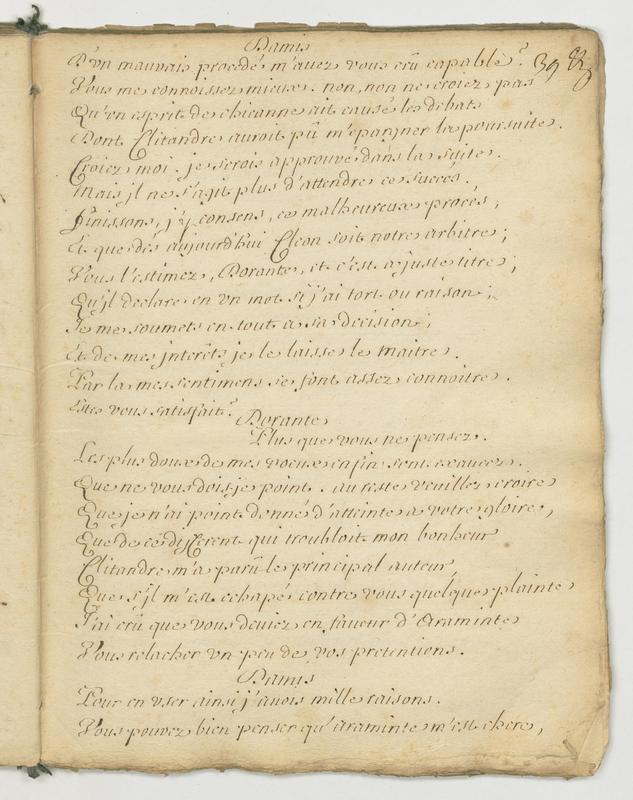 Damis
D'vn mauvais procedé m'auez vous crû capable ? 39
Vous me connoissez mieux. non, non ne croiez pas
Qu'vn esprit de chicanne ait causé les debats
Dont Clitandre auroit pû m'epargner la poursuite.
Croiez moi. je serois approuvé dans la suite.
Mais jl ne s'agit plus d'attendre ce succés.
Finissons, j'y consens, ce malheureux procés,
Et que dés aujourd'hui Cleon soit notre arbitre ;
Vous l'estimez, Dorante, et c'est a juste titre ;
Qu'jl declare en vn mot si j'ai tort ou raison ;
Je me soumets en tout a sa decision ;
Et de mes jnterêts je le laisse le maitre.
Par la mes sentimens se font assez connoitre.
Estes vous satisfait ?
Dorante
Plus que vous ne pensez.
Les plus doux de mes voeux enfin sont exaucez.
Que ne vous dois-je point. au reste veuillez croire
Que je n'ai point donné d'atteinte a votre gloire,
Que de ce different qui troubloit mon bonheur
Clitandre m'a parû le principal auteur,
Que s'jl m'est echapé contre vous quelque plainte
J'ai crû que vous deviez en faveur d'Araminte
Vous relacher vn peu de vos pretentions.
Damis
Pour en vser ainsi j'avois mille raisons.
Vous pouvez bien penser qu'Araminte m'est chere,